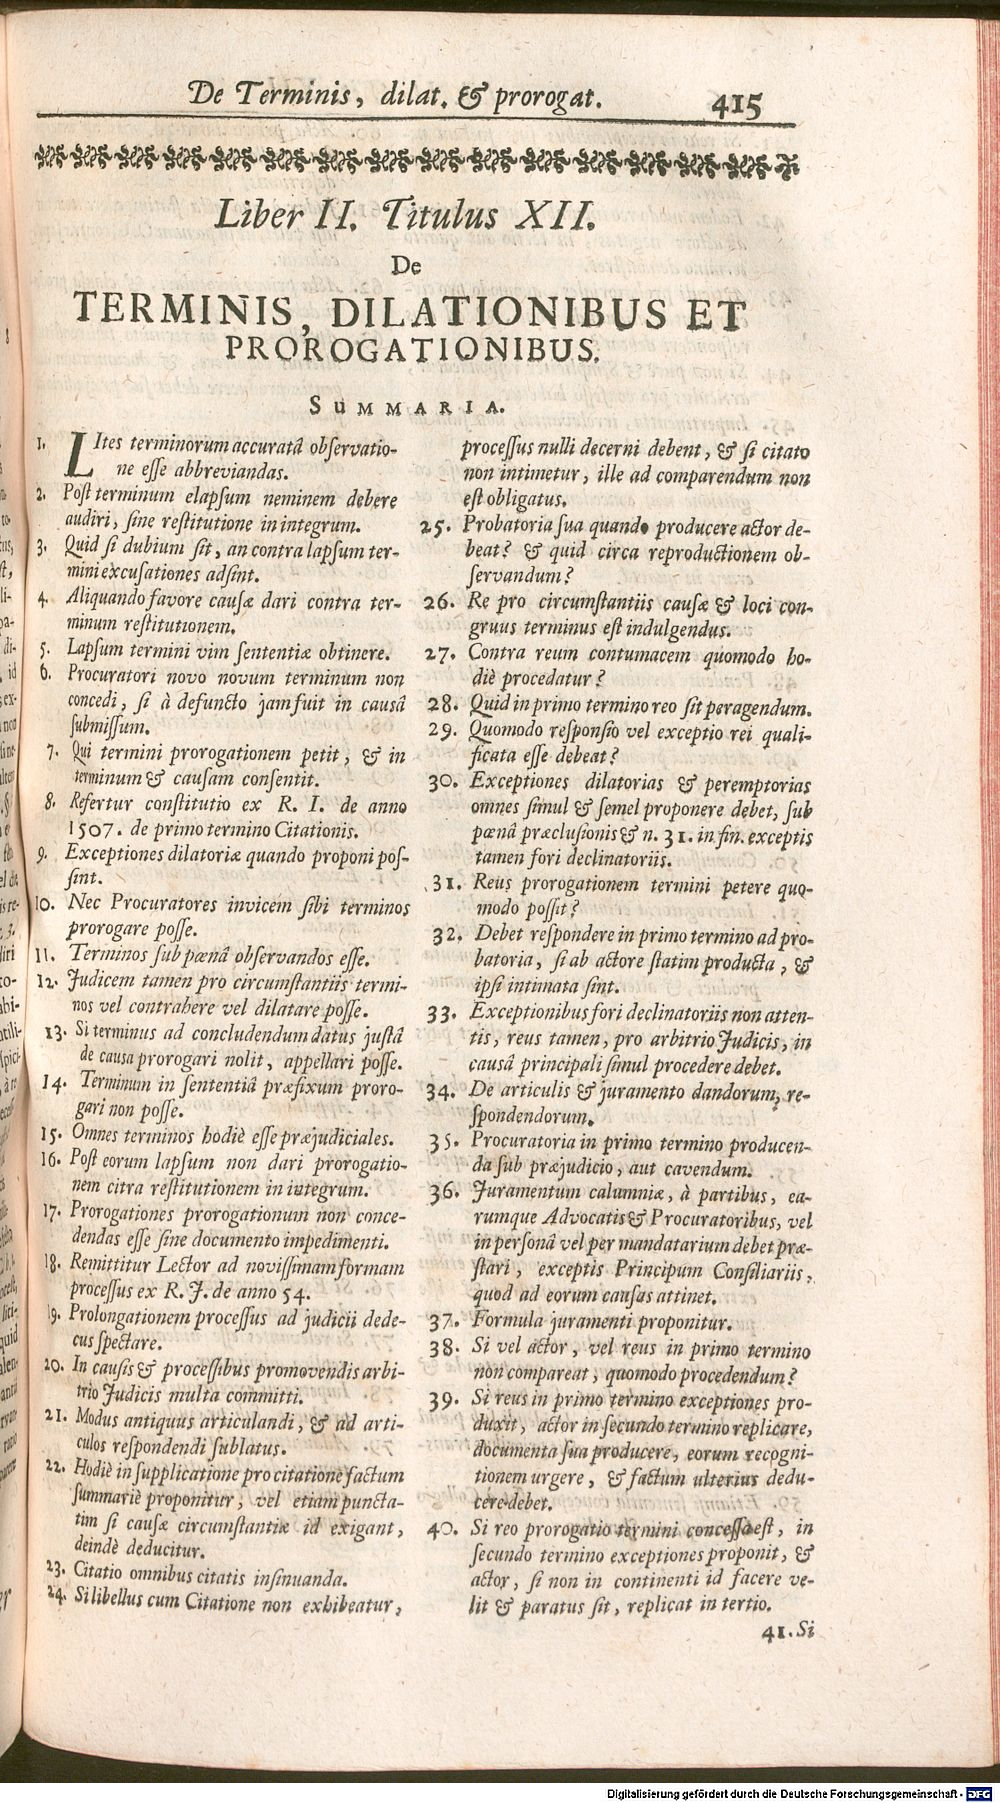 De Terminis, dilat. & prorogat. 415
Liber II. Titulus XII.
De
TERMINIS, DILATIONIBUS ET
PROROGATIONIBUS.
SUMMARIA.
1. LItes terminorum accuratâ observatio-
ne esse abbreviandas.
2. Post terminum elapsum neminem debere
audiri, sine restitutione in integrum.
3. Quid si dubium sit, an contra lapsum ter-
mini excusationes adsint.
4. Aliquando favore causæ dari contra ter-
minum restitutionem.
5. Lapsum termini vim sententiæ obtinere.
6. Procuratori novo novum terminum non
concedi, si à defuncto jam fuit in causâ
submissum.
7. Qui termini prorogationem petit, & in
terminum & causam consentit.
8. Refertur constitutio ex R. I. de anno
1507. de primo termino Citationis.
9. Exceptiones dilatoriæ quando proponi pos-
sint.
10. Nec Procuratores invicem sibi terminos
prorogare posse.
11. Terminos sub pœnâ observandos esse.
12. Judicem tamen pro circumstantiis termi-
nos vel contrahere vel dilatare posse.
13. Si terminus ad concludendum datus justâ
de causa prorogari nolit, appellari posse.
14. Terminum in sententiâ præfixum proro-
gari non posse.
15. Omnes terminos hodiè esse præjudiciales.
16. Post eorum lapsum non dari prorogatio-
nem citra restitutionem in integrum.
17. Prorogationes prorogationum non conce-
dendas esse sine documento impedimenti.
18. Remittitur Lector ad novissimam formam
processus ex R. J. de anno 54.
19. Prolongationem processus ad judicii dede-
cus spectare.
20. In causis & processibus promovendis arbi-
trio Judicis multa committi.
21. Modus antiquus articulandi, & ad arti-
culos respondendi sublatus.
22. Hodiè in supplicatione pro citatione factum
summariè proponitur, vel etiam puncta-
tim si causæ circumstantiæ id exigant,
deindè deducitur.
23. Citatio omnibus citatis insinuanda.
24. Si libellus cum Citatione non exhibeatur,
processus nulli decerni debent, & si citato
non intimetur, ille ad comparendum non
est obligatus.
25. Probatoria sua quando producere actor de-
beat? & quid circa reproductionem ob-
servandum?
26. Re pro circumstantiis causæ & loci con-
gruus terminus est indulgendus.
27. Contra reum contumacem quomodo ho-
diè procedatur?
28. Quid in primo termino reo sit peragendum.
29. Quomodo responsio vel exceptio rei quali-
ficata esse debeat?
30. Exceptiones dilatorias & peremptorias
omnes simul & semel proponere debet, sub
pœnâ præclusionis & n. 31. in fin. exceptis
tamen fori declinatoriis.
31. Reus prorogationem termini petere quo-
modo possit?
32. Debet respondere in primo termino ad pro-
batoria, si ab actore statim producta, &
ipsi intimata sint.
33. Exceptionibus fori declinatoriis non atten-
tis, reus tamen, pro arbitrio Judicis, in
causâ principali simul procedere debet.
34. De articulis & juramento dandorum, re-
spondendorum.
35. Procuratoria in primo termino producen-
da sub præjudicio, aut cavendum.
36. Juramentum calumniæ, à partibus, ea-
rumque Advocatis & Procuratoribus, vel
in personâ vel per mandatarium debet præ-
stari, exceptis Principum Consiliariis,
quod ad eorum causas attinet.
37. Formula juramenti proponitur.
38. Si vel actor, vel reus in primo termino
non compareat, quomodo procedendum?
39. Si reus in primo termino exceptiones pro-
duxit, actor in secundo termino replicare,
documenta sua producere, eorum recogni-
tionem urgere, & factum ulterius dedu-
cere debet.
40. Si reo prorogatio termini concessa est, in
secundo termino exceptiones proponit, &
actor, si non in continenti id facere ve-
lit & paratus sit, replicat in tertio.
41. Si
Digitalisierung gefördert durch die Deutsche Forschungsgemeinschaft - DFG